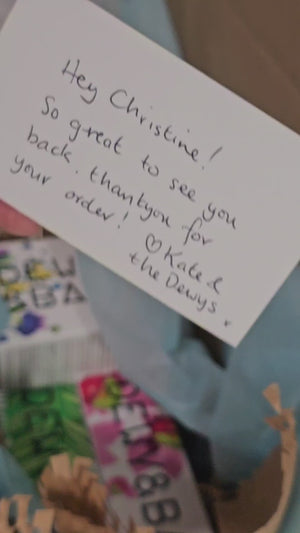 Hey Christine!
So great to see you
back. thankyou for
your order! ♡ Kate &
the Dewys.
DEW
& BA
DEW
DEW & BA